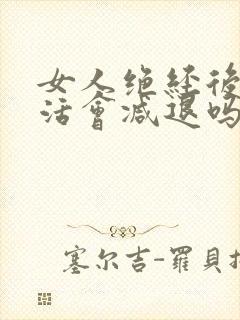 女人绝经後
活會減退吗
塞尔吉-羅貝接